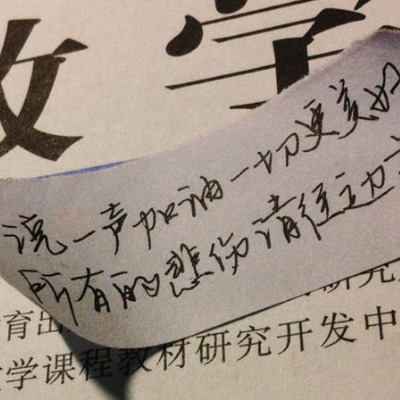 数学
说一声加油一切更美好
所有的悲伤请往边
教育出
研究
学课程教材研究开发中